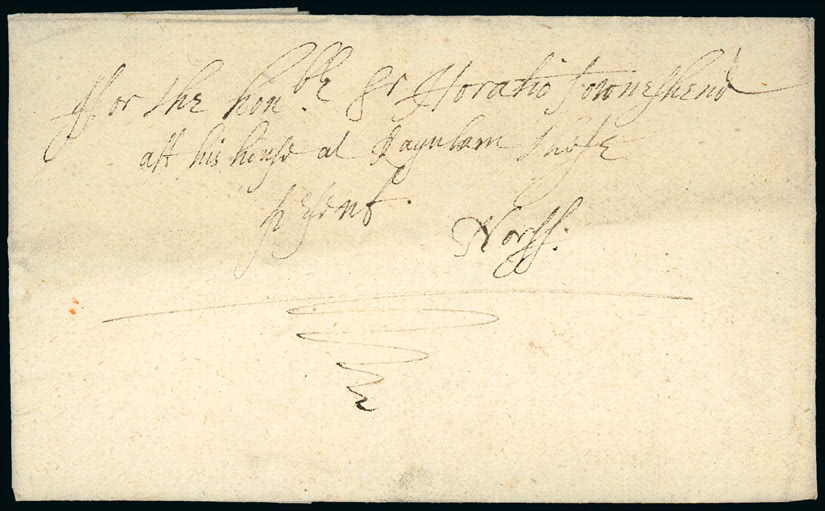 ffor the hon.ble Sr Horatio Towneshend
att his house at Raynlam these
present.
Norff: